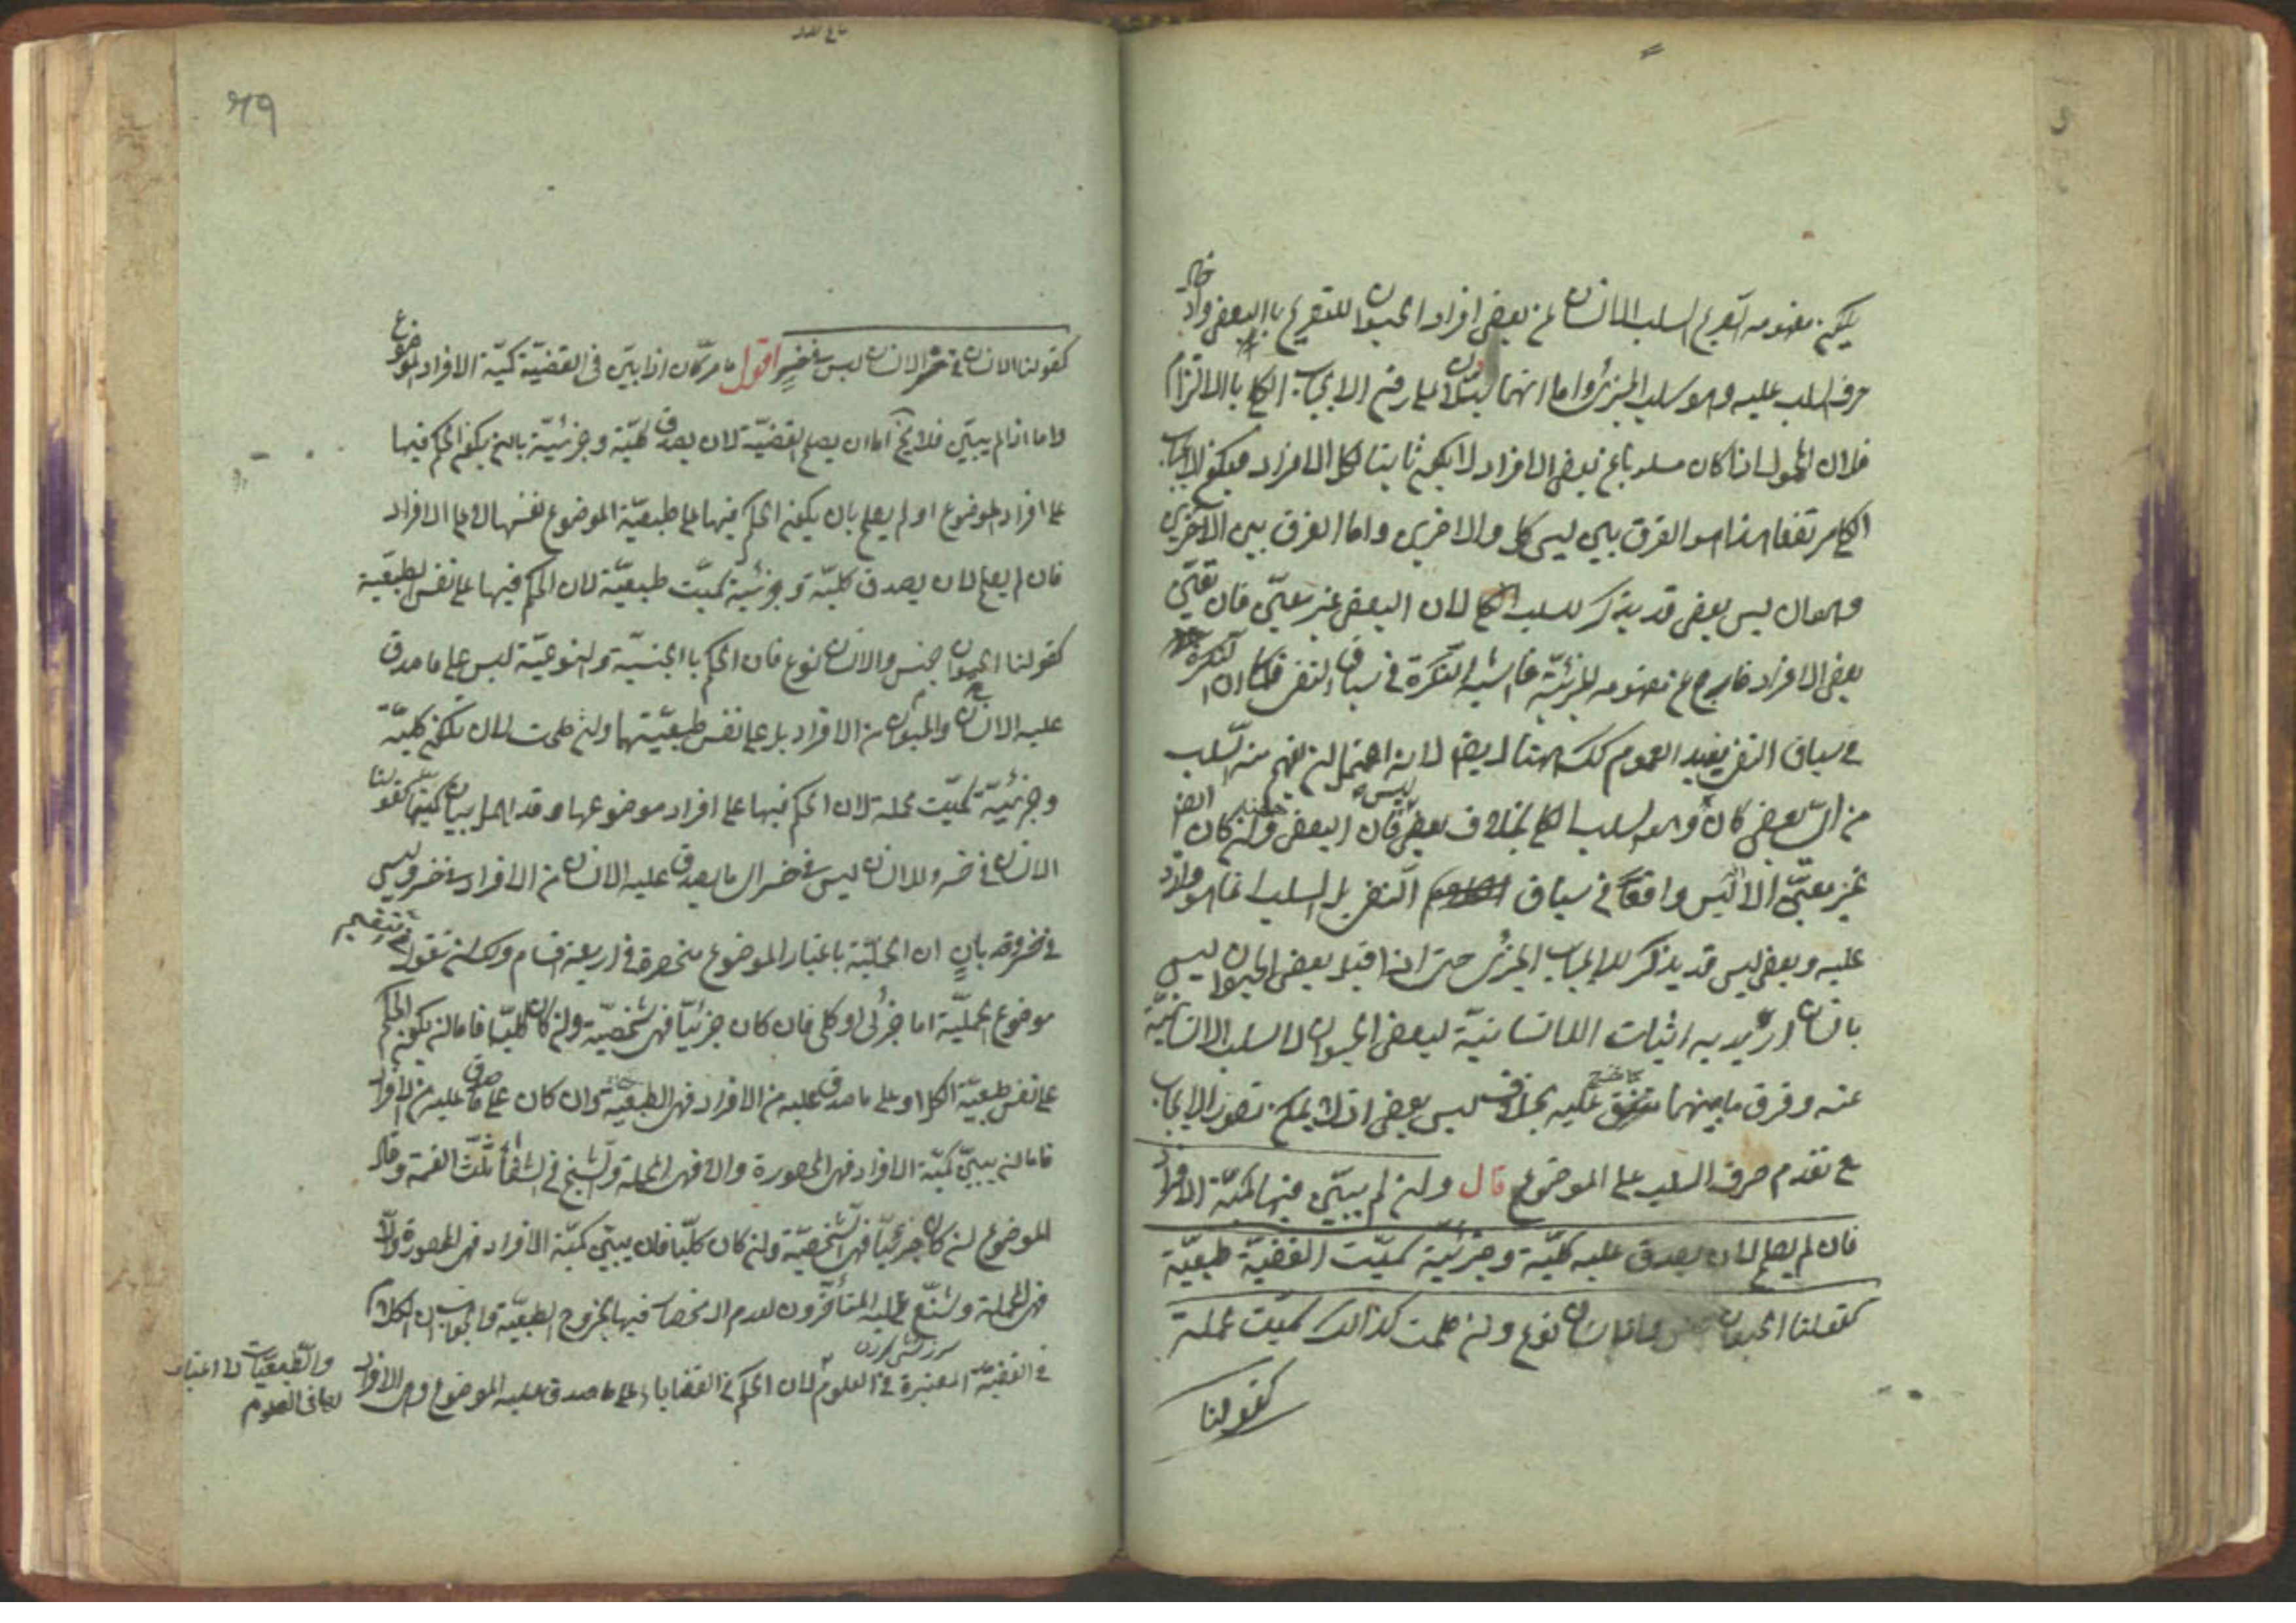 يكون مفهومه الصريح السلب الانسان عن بعض افراد الحيوان للتصريح باالبعض وادخال
حرف السلب عليه وهو سلب الجزئى واما انهما يدلان على رفع الايجاب الكلى باالالتزام
فلان المحمول اذا كان مسلوبا عن بعض الافراد لا يكون ثابتا لكل الافراد فيكون الايجاب
الكلى مرتفعا هذا هو الفرق بين ليس كل والاخرين واما الفرق بين الاخرين
وهو ان ليس بعض قد يذكر للسلب الكلى لان البعض غير معين فان تعين
بعض الافراد خارج عن مفهومه الجزئية فاشبه النكرة فى سياق النفى فكما ان النكرة
فى سياق النفى يفيد العموم كك هنا ايضا لانه احتمل ان يفهم منه السلب
من اى بعض كان وهو السلب الكلى بخلاف بعض ليس فان البعض هنا وان كان ايضا
غير معين الا ليس واقعا فى سياق النفى بل السلب انما هو وارد
عليه وبعض ليس قد يذكر للايجاب الجزئى حتى اذا قيل بعض الحيوان ليس
بانسان اريد به اثبات اللاانسانية لبعض الحيوان لا سلب الانسانية
عنه وفرق ما بينهما كما ستقف عليه بخلاف ليس بعض اذ لا يمكن تصور الايجاب
مع تقدم حرف السلب على الموضوع قال وان لم يبين فيها كمية الافراد
فان لم يصلح لان يصدق عليه كلية وجزئية سميت القضية طبيعية
كقولنا الحيوان جنس والانسان نوع وان صلحت كذالك سميت مهملة
كقولنا
٦٩
كقولنا الانسان فى خسر الانسان ليس فى خسر اقول ما مر كان اذا بين فى القضية كمية الافراد الموضوع
واما اذا لم يبين فلا يخ اما ان يصلح القضية لان يصدق كلية وجزئية بان يكون الحكم فيها
على افراد الموضوع او لم يصلح بان يكون الحكم فيها على طبيعة الموضوع نفسها لا على الافراد
فان لم يصلح لان يصدق كلية وجزئية سميت طبيعية لان الحكم فيها على نفس الطبيعة
كقولنا الحيوان جنس والانسان نوع فان الحكم باالجنسية والنوعية ليس على ما صدق
عليه الانسان والحيوان من الافراد بل على نفس طبيعتهما وان صلحت لان تكون كلية
وجزئية سميت مهملة لان الحكم فيها على افراد موضوعها وقد اهمل بيان كميتها كقولنا
الانسان فى خسر والانسان ليس فى خسر اى ما يصدق عليه الانسان من الافراد فى خسر وليس
فى خسر وقد بان ان الحملية باعتبار الموضوع منحصرة فى اربعة اقسام ولك ان تقول فى تقسيم
موضوع الحملية اما جزئى او كلى فان كان جزئيا فهى شخصية وان كان كليا فاما ان يكون الحكم
على نفس طبيعة الكل او على ما صدق عليه من الافراد فهى الطبيعية وان كان على ما صدق عليه من الافراد
فاما ان يبين كمية الافراد فهى المحصورة والا فهى المهملة والشيخ فى الشفا ثلث القسمة وقال
الموضوع ان كان جزئيا فهى الشخصية وان كان كليا فان يبين كمية الافراد فهى المحصورة والا
فهى المهملة وشنع عليه المتأخرون لعدم الانحصار فيها بخروج الطبيعية والجواب ان الكلام
فى القضية المعتبرة فى العلوم لان الحكم فى القضايا على ما صدق عليه الموضوع وهى الافراد
والطبيعيات لا اعتبار
لها فى العلوم